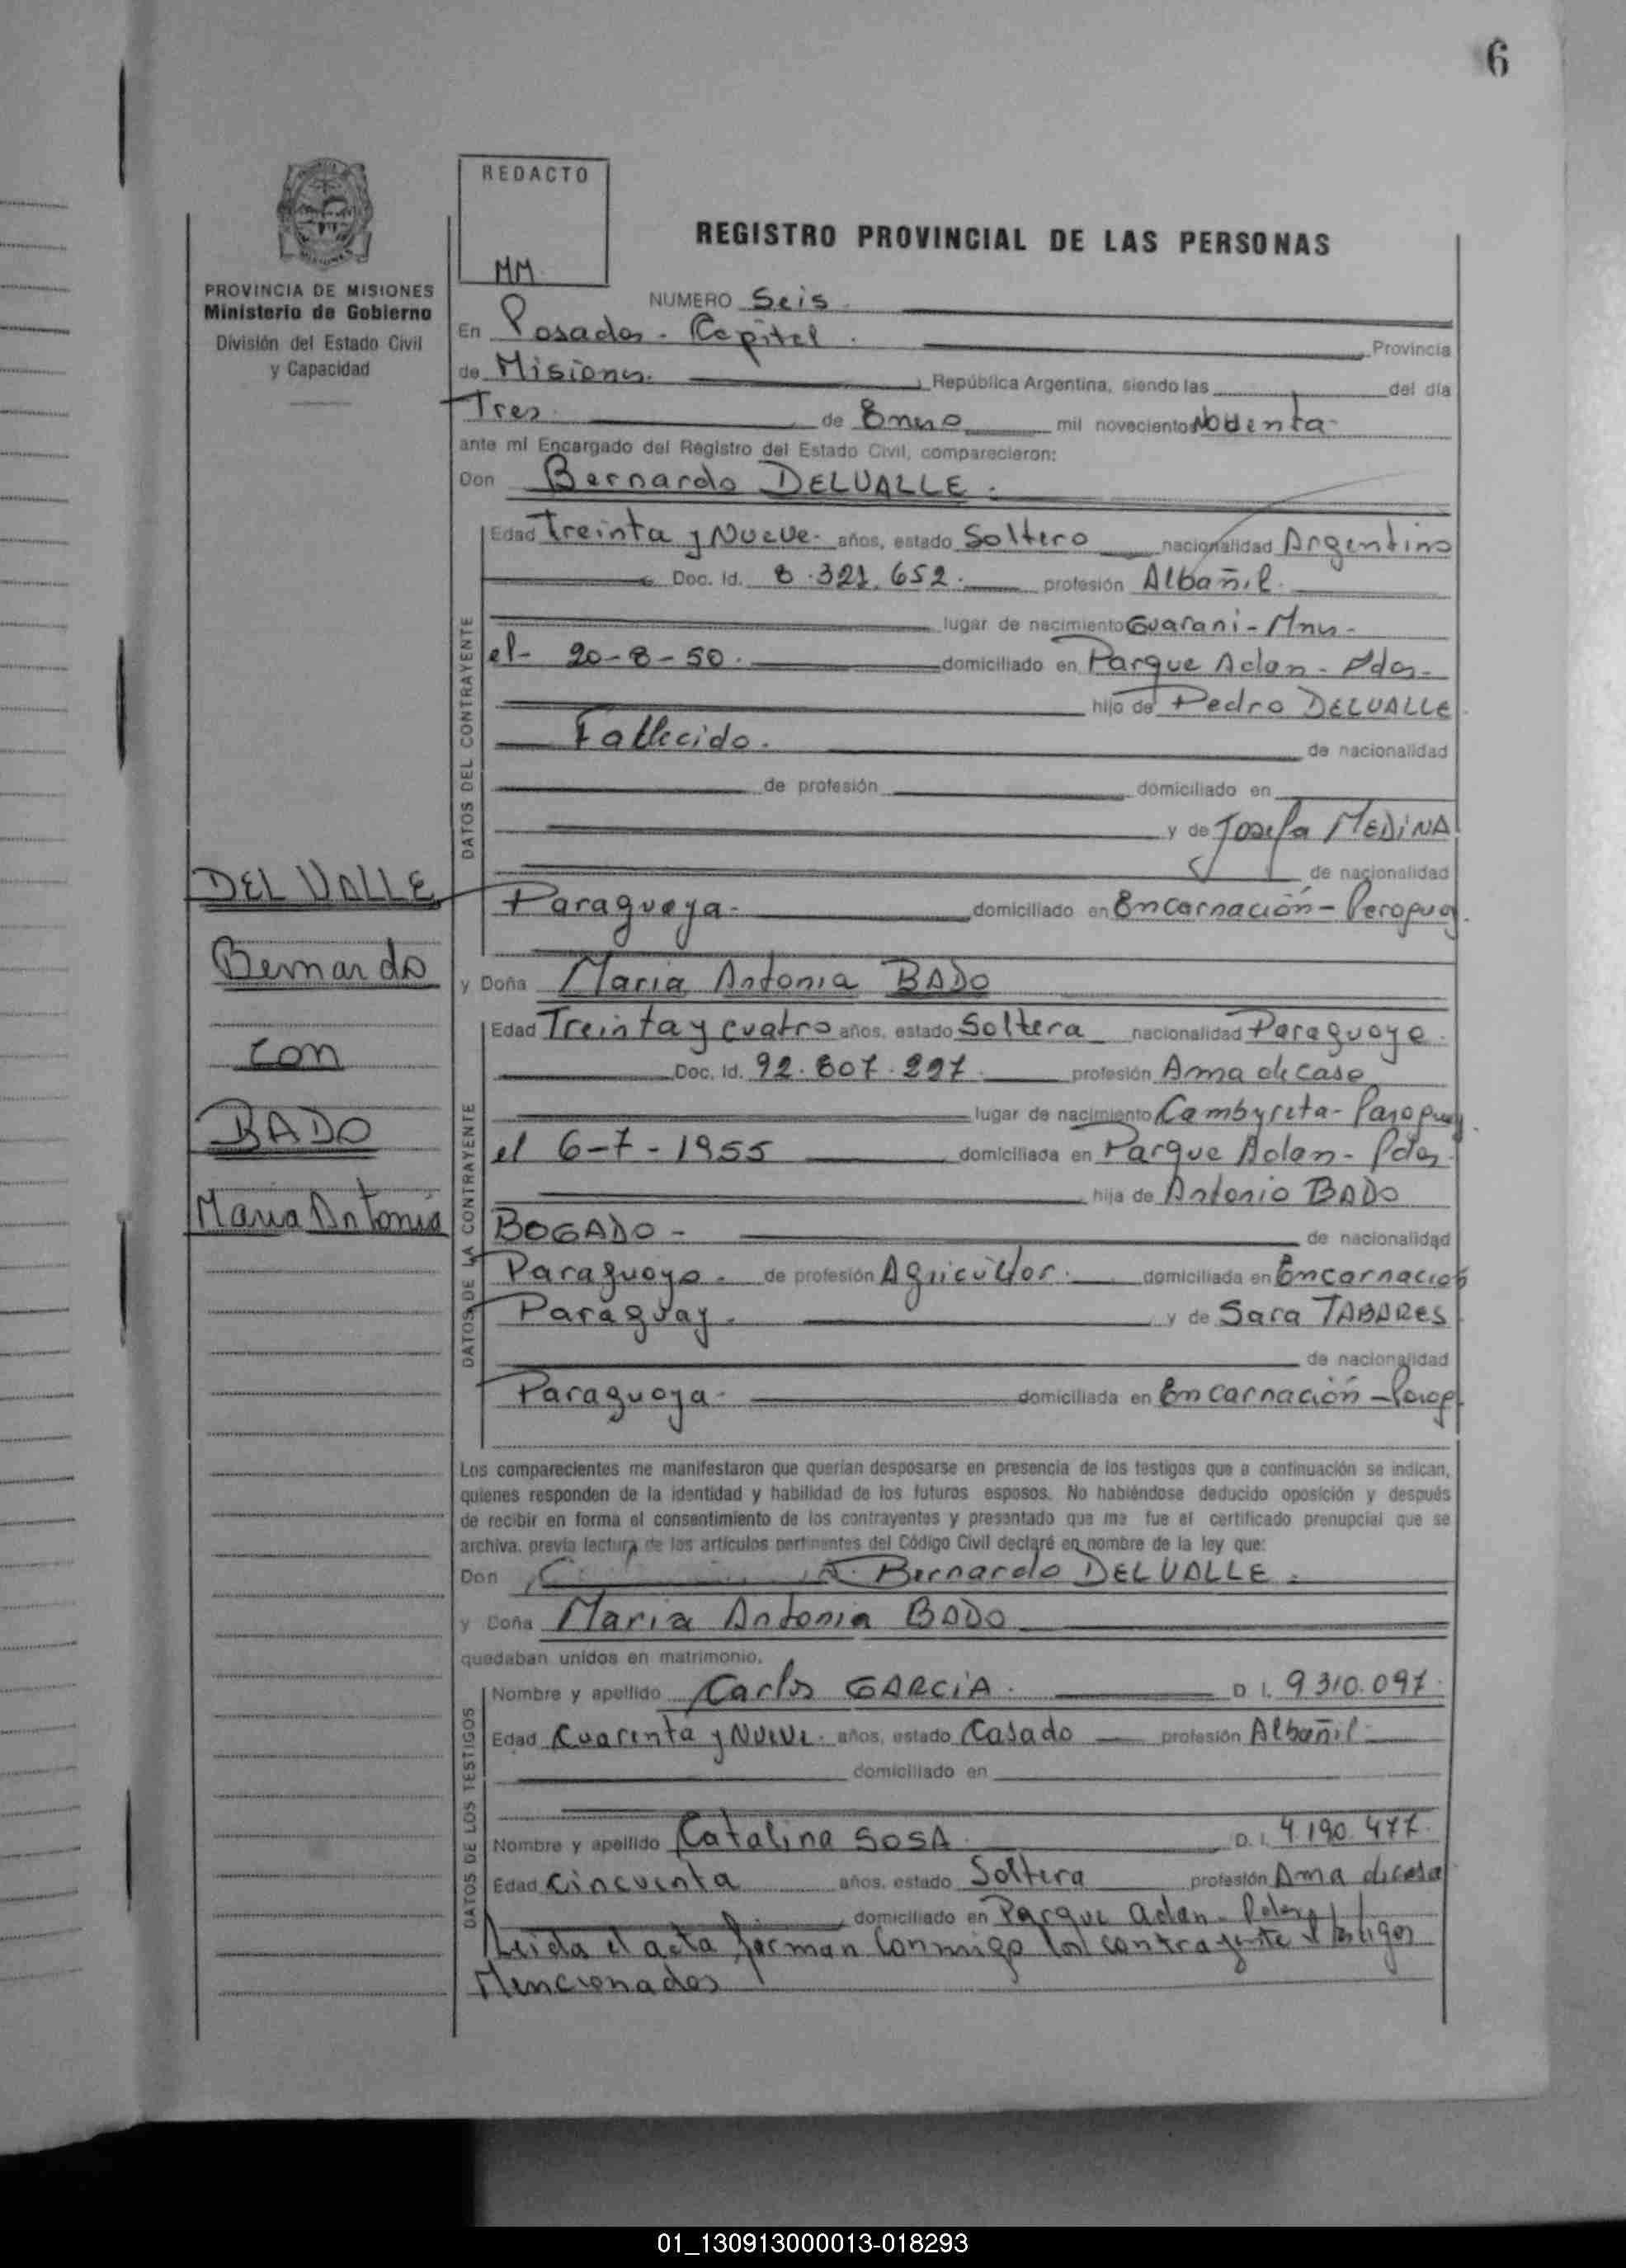 6
REDACTO
MM
REGISTRO PROVINCIAL DE LAS PERSONAS
PROVINCIA DE MISIONES
Ministerio de Gobierno
División del Estado Civil
y Capacidad
NUMERO Seis
En Posadas - Capital. Provincia
de Misiones. República Argentina, siendo las del día
Tres de Enero mil novecientos Noventa
ante mí Encargado del Registro del Estado Civil, comparecieron:
Don Bernardo DELVALLE.
DATOS DEL CONTRAYENTE
Edad Treinta y Nueve años, estado Soltero nacionalidad Argentino
Doc. Id. 8.321.652. profesión Albañil.
lugar de nacimiento Guarani - Mnes -
el - 20-8-50. domiciliado en Parque Adan - Pdas -
hijo de Pedro DELVALLE
Fallecido. de nacionalidad
de profesión domiciliado en
y de Josefa MEDINA
de nacionalidad
Paraguaya - domiciliado en Encarnación - Paraguay
DEL VALLE
Bernardo
con
BADO
Maria Antonia
y Doña Maria Antonia BADO
DATOS DE LA CONTRAYENTE
Edad Treinta y cuatro años, estado Soltera nacionalidad Paraguaya.
Doc. Id. 92.807.297. profesión Ama de casa
lugar de nacimiento Cambyreta - Paraguay
el 6-7-1955 domiciliada en Parque Adan - Pdas.
hija de Antonio BADO
BOGADO - de nacionalidad
Paraguayo. de profesión Agricultor. domiciliada en Encarnación
Paraguay. y de Sara TABARES
de nacionalidad
Paraguaya - domiciliada en Encarnación - Parag
Los comparecientes me manifestaron que querían desposarse en presencia de los testigos que a continuación se indican,
quienes responden de la identidad y habilidad de los futuros esposos. No habiéndose deducido oposición y después
de recibir en forma el consentimiento de los contrayentes y presentado que me fue el certificado prenupcial que se
archiva, previa lectura de los artículos pertinentes del Código Civil declaré en nombre de la ley que:
Don Bernardo DELVALLE.
y Doña Maria Antonia BADO
quedaban unidos en matrimonio.
DATOS DE LOS TESTIGOS
Nombre y apellido Carlos GARCIA. D I. 9310.097.
Edad Cuarenta y Nueve. años, estado Casado profesión Albañil
domiciliado en
Nombre y apellido Catalina SOSA. D. I. 4.190.477.
Edad Cincuenta años, estado Soltera profesión Ama de casa
domiciliado en Parque Adan - Pdas
Leida el acta firman Conmigo los contrayente y testigos
Mencionados
01_130913000013-018293